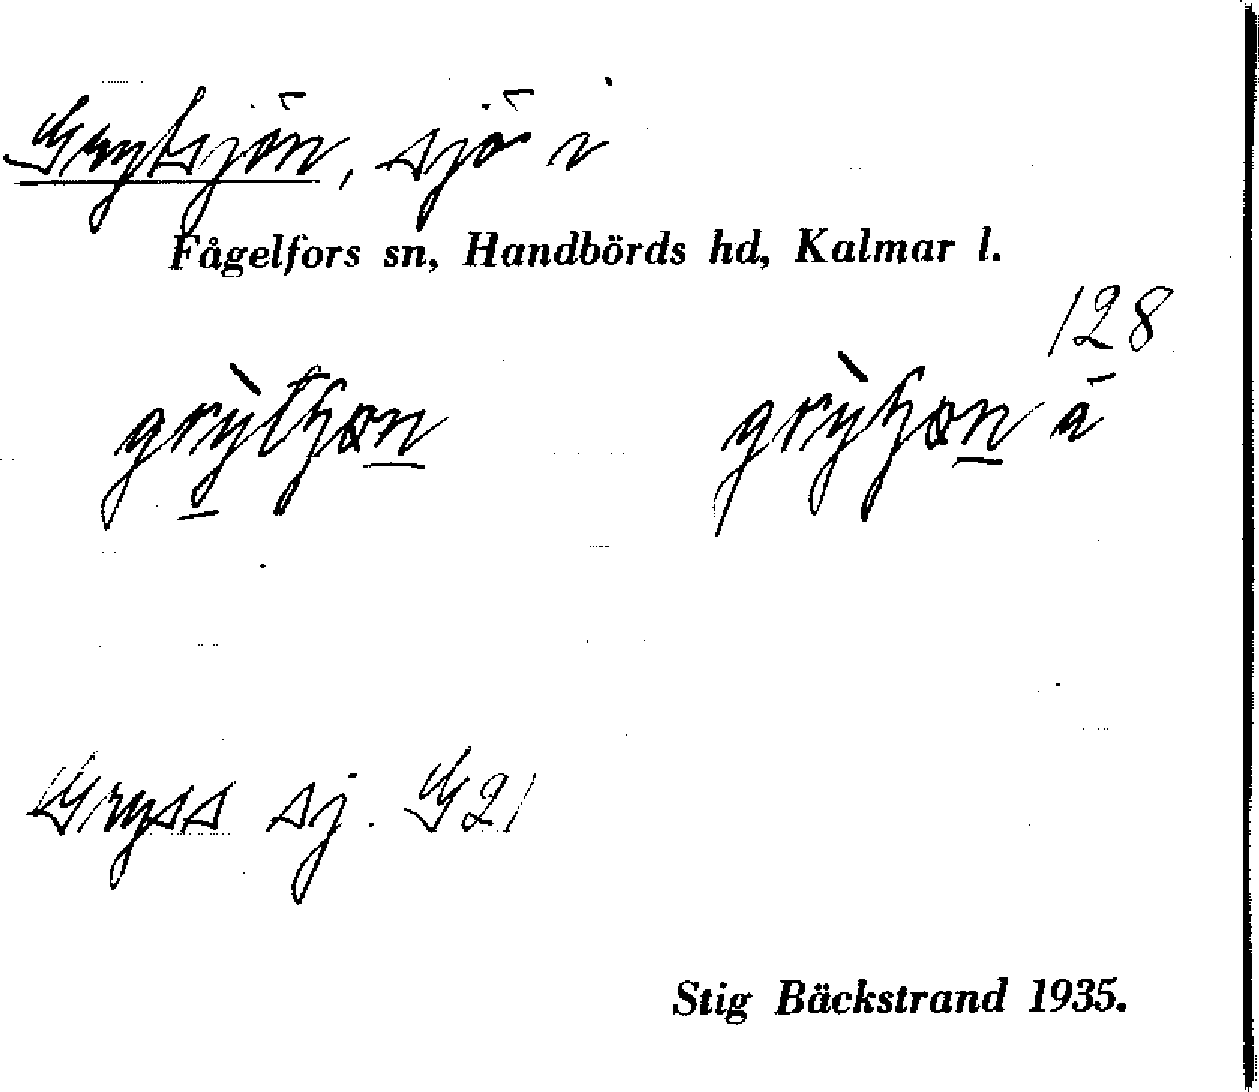 Grytsjön, sjö i
Fågelfors sn, Handbörds hd, Kalmar l.
128
Gryss sj. G21
Stig Bäckstrand 1935.